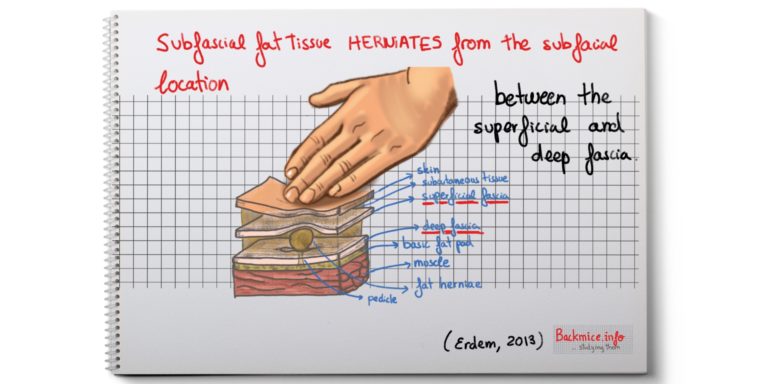 Subfascial fat tissue HERNIATES from the subfacial
location
between the
superficial and
deep fascia.
skin
subcutaneous tissue
superficial fascia
deep fascia
basic fat pad
muscle
fat herniae
pedicle
(Erdem, 2013)
Backmice.info
... studying them